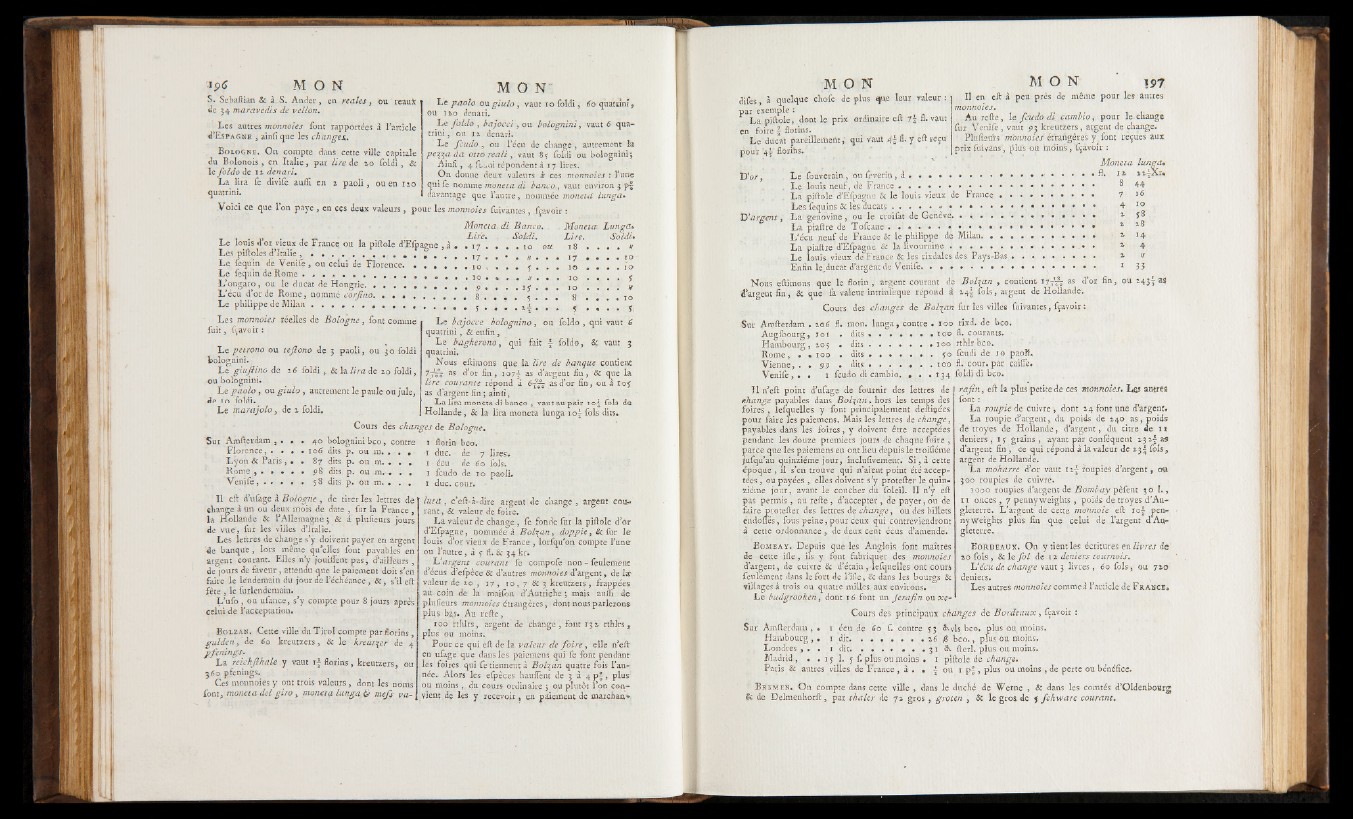 196 MON MON
S. Sebastian & à S. Ander, en reales, ou reaux
de 34 maravedis de vellon.
Les autres monnoies sont rapportées à l'article
d'ESPAGNE, ainsi que les changes.
BOLOGNE. On compte dans cette ville capitale
du Bolonois, en Italie, par lire de 20 soldi, &
le soldo de 12 denari.
La lira se divise aussi en 2 paoli, ou en 120
quatrini.
Le paolo ou giulo, vaut 10 soldi, 60 quatrini,
ou 120 denari.
Le soldo, bajocci, ou bolognini, vaut 6 qua-
trini, ou 12 denari.
Le scudo, ou l'écu de change, autrement la
pezza da otto reali, vaut 85 soldi ou bolognini;
Ainsi, 4 scudi répondent à 17 lires.
On donne deux valeurs à ces monnoies: l'une
qui se nomme moneta di banco, vaut environ 3 p°
davantage que l'autre, nommée moneta lunga.
Voici ce que l'on paye, en ces deux valeurs, pour les monnoies suivantes, sçavoir:
Moneta di Banco. Moneta Lunga.
Lire. Soldi. Lire. Soldi.
Le louis d'or vieux de France ou la pistole d'Espagne, à . . 17 . . . . 10 ou 18 . . . . "
Les pistoles d'Italie, . . . 17 . . . . " . . . 17 . . . . 10
Le sequin de Venise, ou celui de Florence. . . . 10 . . . . 5 . . . 10 . . . . 10
Le sequin de Rome . . . 10 . . . . " . . . 10 . . . . 5
L'ongaro, ou le ducat de Hongrie. . . . 9 . . . . 15 . . . 10 . . . . "
L'écu d'or de Rome, nommé corsino. . . . 8 . . . . 5 . . . 8 . . . . 10
Le philippe de Milan . . . 5 . . . . 2½ . . . 5 . . . . 5
Les monnoies réelles de Bologne, sont comme
suit, sçavoir:
Le petrono ou testono de 3 paoli, ou 30 soldi
bolognini.
Le giustino de 26 soldi, & la lira de 20 soldi,
ou bolognini.
Le paolo, ou giulo, autrement le paule ou jule,
de 10 soldi.
Le marajolo, de 2 soldi.
Le bajocce bolognino, ou soldo, qui vaut 6
quatrini, & enfin,
Le bagherono, qui fait ½ soldo, & vaut 3
quatrini.
Nous estimons que la lire de banque contient
as d'or fin, as d'argent fin, & que la
lire courante répond à as d'or fin, ou à 105
as d'argent fin; ainsi,
La lira moneta di banco, vaut au pair 10¾ sols de
Hollande, & la lira moneta lunga 10½ sols dits.
Cours des changes de Bologne.
Sur Amsterdam, . . . 40 bolognini bco, contre 1 florin bco.
Florence, . . . . 106 dits p. ou m. . . . 1 duc. de 7 lires.
Lyon & Paris, . . 87 dits p. ou m. . . . 1 écu de 60 sols.
Rome, . . . . . 98 dits p. ou m. . . . 1 scudo de 10 paoli.
Venise, . . . . . 58 dits p. ou m. . . . 1 duc. cour.
Il est d'usage à Bologne, de tirer les lettres de
change à un ou deux mois de date, sur la France,
la Hollande & l'Allemagne; & à plusieurs jours
de vue, sur les villes d'Italie.
Les lettres de change s'y doivent payer en argent
de banque, lors même qu'elles sont payables en
argent courant. Elles n'y jouissent pas, d'ailleurs,
de jours de faveur, attendu que le paiement doit s'en
faire le lendemain du jour de l'échéance, &, s'il est
fête, le surlendemain.
L'uso, ou usance, s'y compte pour 8 jours après
celui de l'acceptation.
BOLZAN. Cette ville du Tirol compte par florins,
gulden, de 60 kreutzers, & le kreutzer de 4
pfenings.
La reichsthale y vaut 1½ florins, kreutzers, ou
360 pfenings.
Ces monnoies y ont trois valeurs, dont les noms
sont, moneta del giro, moneta lunga & mesa va-
luta, c'est-à-dire argent de change, argent cou-
rant, & valeur de foire.
La valeur de change, se fonde sur la pistole d'or
d'Espagne, nommée à Bolzan, doppie, & sur le
louis d'or vieux de France, lorsqu'on compte l'une
ou l'autre, à 5 fl. & 34 kr.
L'argent courant se compose non-seulement
d'écus d'espèce & d'autres monnoies d'argent, de la
valeur de 20, 17, 10, 7 & 3 kreutzers, frappées
au coin de la maison d'Autriche; mais aussi de
plusieurs monnoies étrangères, dont nous parlerons
plus bas. Au reste,
100 rthlrs, argent de change, font 132 rthlrs,
plus ou moins.
Pour ce qui est de la valeur de foire, elle n'est
en usage que dans les paiemens qui se font pendant
les foires qui se tiennent à Bolzan quatre fois l'an-
née. Alors les espèces haussent de 3 à 4 p°, plus
ou moins, du cours ordinaire; ou plutôt l'on con-
vient de les y recevoir, en paiement de marchan-
MON MON 197
dises, à quelque chose de plus que leur valeur:
par exemple:
La pistole, dont le prix ordinaire est 7½ fl. vaut
en foire florins.
Le ducat pareillement, qui vaut 4½ fl. y est reçu
pour florins.
Il en est à peu près de même pour les autres
monnoies.
Au reste, le scudo di cambio, pour le change
sur Venise, vaut 93 kreutzers, argent de change.
Plusieurs monnoies étrangères y sont reçues aux
prix suivans, plus ou moins, sçavoir:
Moneta lunga.
D'or, Le souverain, ou severin, à . . . fl. 12 22½Xr.
Le louis neuf, de France . . . 8 44
La pistole d'Espagne & le louis vieux de France . . . 7 16
Les sequins & les ducats . . . 4 10
D'argent, La genovine, ou le croisat de Genève. . . . 2 58
La piastre de Toscane . . . 2 28
L'écu neuf de France & le philippe de Milan. . . . 2 14
La piastre d'Espagne & la livournine . . . 2 4
Le louis vieux de France & les rixdales des Pays-Bas . . . 2 "
Enfin le ducat d'argent de Venise. . . . 1 33
Nous estimons que le florin, argent courant de Bolzan, contient as d'or fin, ou 243½ as
d'argent fin, & que sa valeur intrinsèque répond à 24½ sols, argent de Hollande.
Cours des changes de Bolzan sur les villes suivantes, sçavoir:
Sur Amsterdam . 206 fl. mon. lunga, contre . 100 rixd. de bco.
Augsbourg, 101 . dits . . . . . . . 100 fl. courants.
Hambourg, 205 . dits . . . . . . . 100 rthlr bco.
Rome, . . 100 . dits . . . . . . . 50 scudi de 10 paoli.
Vienne, . . 99 . dits . . . . . . . 100 fl. cour. par caisse.
Venise, . . 1 scudo di cambio. . . . 134 soldi di bco.
Il n'est point d'usage de fournir des lettres de
change payables dans Bolzan, hors les temps des
foires, lesquelles y sont principalement destinées
pour faire les paiemens. Mais les lettres de change,
payables dans les foires, y doivent être acceptées
pendant les douze premiers jours de chaque foire,
parce que les paiemens en ont lieu depuis le treisième
jusqu'au quinzième jour, inclusivement. Si, à cette
époque, il s'en trouve qui n'aient point été accep-
tées, ou payées, elles doivent s'y protester le quin-
zième jour, avant le coucher du soleil. Il n'y est
pas permis, au reste, d'accepter, de payer, ou de
faire protester des lettres de change, ou des billets
endossés, sous peine, pour ceux qui contreviendront
à cette ordonnance, de deux cent écus d'amende.
BOMBAY. Depuis que les Anglois sont maîtres
de cette isle, ils y font fabriquer des monnoies
d'argent, de cuivre & d'étain, lesquelles ont cours
seulement dans le fort de l'isle, & dans les bourgs &
villages à trois ou quatre milles aux environs.
Le budgrooken, dont 16 font un serafin ou xe-
rafin, est la plus petite de ces monnoies. Les autres
sont:
La roupie de cuivre, dont 24 font une d'argent.
La roupie d'argent, du poids de 240 as, poids
de troyes de Hollande, d'argent, du titre de 11
deniers, 15 grains, ayant par conséquent 232½ as
d'argent fin, ce qui répond à la valeur de 23¼ sols,
argent de Hollande.
La moharre d'or vaut 12½ roupies d'argent, ou
300 roupies de cuivre.
1000 roupies d'argent de Bombay pèsent 30 l.,
11 onces, 7 pennyweights, poids de troyes d'An-
gleterre. L'argent de cette monnoie est 10½ pen-
nyweights plus fin que celui de l'argent d'An-
gleterre.
BORDEAUX. On y tient les écritures en livres de
20 sols, & le sol de 12 deniers tournois.
L'écu de change vaut 3 livres, 60 sols, ou 720
deniers.
Les autres monnoies comme à l'article de FRANCE.
Cours des principaux changes de Bordeaux, sçavoir:
Sur Amsterdam, . 1 écu de 60 s. contre 53 vls bco, plus ou moins.
Hambourg, . 1 dit. . . . . . . . 26 ß bco., plus ou moins.
Londres, . . 1 dit. . . . . . . . 31 sterl. plus ou moins.
Madrid, . . 15 l. 5 s. plus ou moins . 1 pistole de change.
Paris & autres villes de France, à . . ½ ou 1 p°, plus ou moins, de perte ou bénéfice.
BREMEN. On compte dans cette ville, dans le duché de Werne, & dans les comtés d'Oldenbourg
& de Delmenhorst, par thaler de 72 gros, groten, & le gros de 5 schware courant.